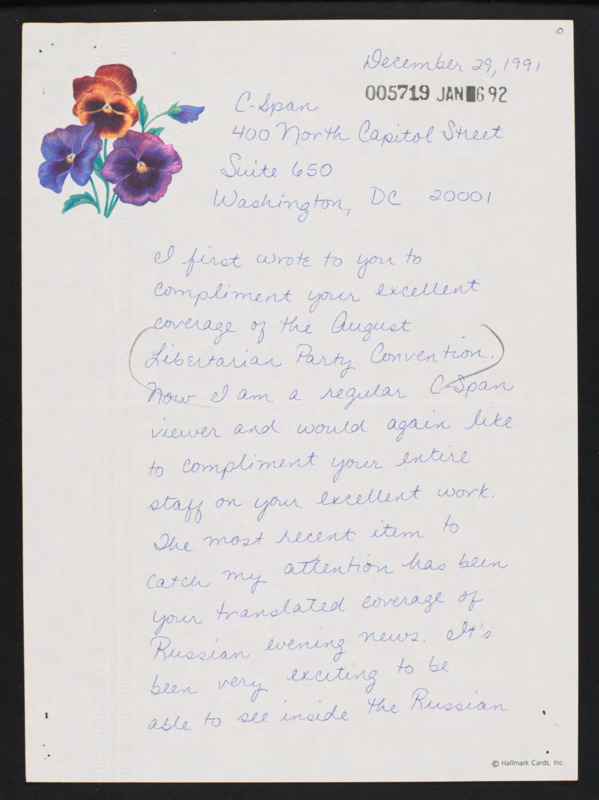 December 29, 1991
005719 JAN 6 92
C-Span
400 North Capitol Street
Suite 650
Washington, DC 20001
I first wrote to you to
compliment your excellent
coverage of the August
Libertarian Party Convention.
Now I am a regular C-Span
viewer and would again like
to compliment your entire
staff on your excellent work.
The most recent item to
catch my attention has been
your translated coverage of
Russian evening news. It's
been very exciting to be
able to see inside the Russian
© Hallmark Cards, Inc.